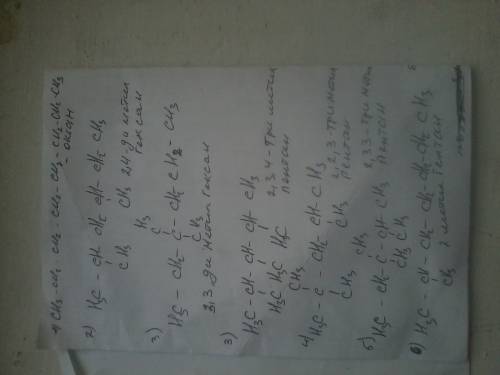 1) CH3-CH2 CH2-CH2-CH2-CH2-CH2-CH3
- октан
2) H3C - CH CH2 CH CH2 CH3
CH3 CH3 2,4 ди метил
гексан
H3
C
3) H3C - CH2 - C - CH2 CH2 - CH3
CH3
3,3 ди метил гексан
3) H3C - CH - CH - CH CH3
H3C H3C H3C 2,3,4 - три метил
пентан
CH3
4) H3C - C - CH2 CH CH3
CH3 CH3 2,2,3-триметил
пентан
CH3
5) H3C - CH - C - CH2 CH3
CH3 CH3 2,3,3-три метил
пентан
6) H3C - CH - CH2 - CH2 CH2 CH2 CH3
CH3 2 метил гептан